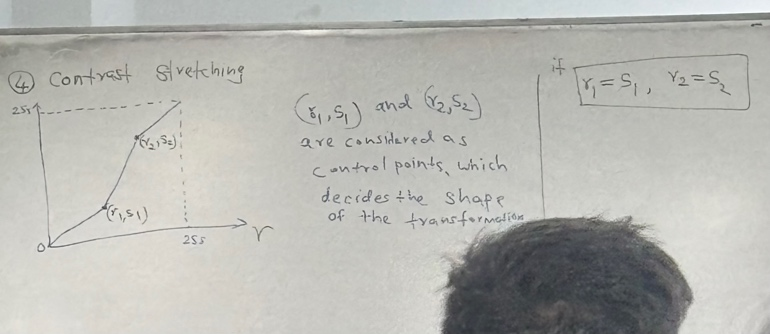 ④ Contrast Stretching
255
(r₂,S₂)
(r₁,S₁)
0
255
r
(r₁,S₁) and (r₂,S₂)
are considered as
control points, which
decides the shape
of the transformation
if
r₁=S₁, r₂=S₂